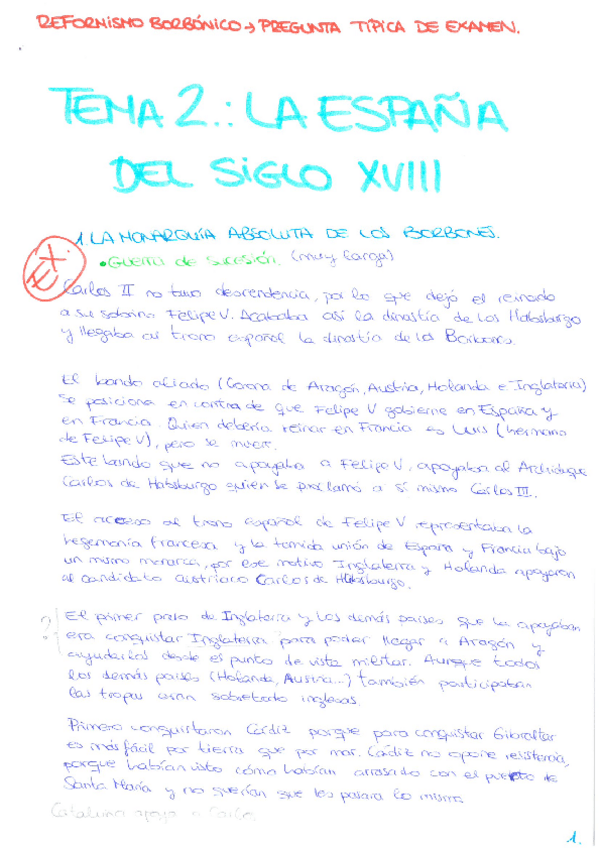 REFORNISMO BORBÓNICO → PREGUNTA TÍPICA DE EXAMEN.
TEMA 2.: LA ESPAÑA
DEL SIGLO XVIII
1. LA MONARQUÍA ABSOLUTA DE LOS BORBONES.
EX.
• Guerra de sucesión. (muy larga)
Carlos II no tuvo descendencia, por lo que dejó el reinado
a su sobrino Felipe V. Acababa así la dinastía de los Habsburgo
y llegaba al trono español la dinastía de los Borbones.
El bando aliado (Corona de Aragón, Austria, Holanda e Inglaterra)
se posiciona en contra de que Felipe V gobierne en España y
en Francia. Quien debería reinar en Francia es Luis (hermano
de Felipe V), pero se muere.
Este bando que no apoyaba a Felipe V, apoyaba al Archiduque
Carlos de Habsburgo quien se proclamó a sí mismo Carlos III.
El acceso al trono español de Felipe V representaba la
hegemonía francesa y la temida unión de España y Francia bajo
un mismo monarca, por ese motivo Inglaterra y Holanda apoyaron
al candidato austriaco Carlos de Habsburgo.
? El primer paso de Inglaterra y los demás países que la apoyaban
era conquistar Inglaterra para poder llegar a Aragón y
ayudarlos desde el punto de vista militar. Aunque todos
los demás países (Holanda, Austria...) también participaban
las tropas eran sobretodo inglesas.
Primero conquistaron Cádiz porque para conquistar Gibraltar
es más fácil por tierra que por mar. Cádiz no opone resistencia,
porque habían visto cómo habían arrasado con el puerto de
Santa María y no querían que les pasara lo mismo.
Cataluña apoya a Carlos
1.